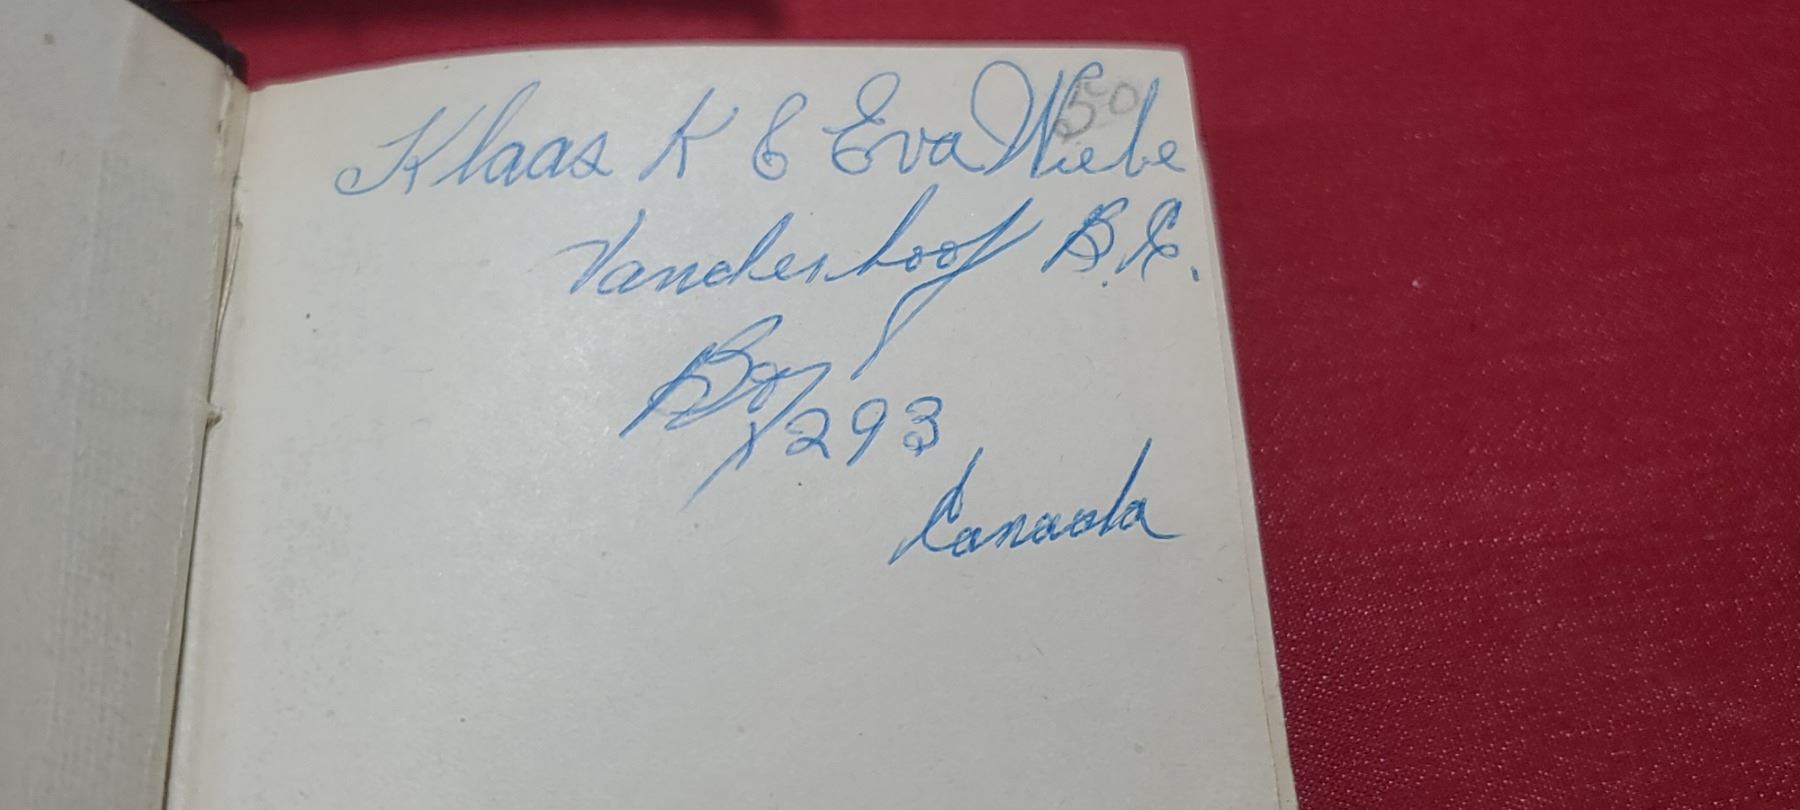 Klaas K & Eva Wiebe
50
Vanderhoof B.C.
Box 293
Canada